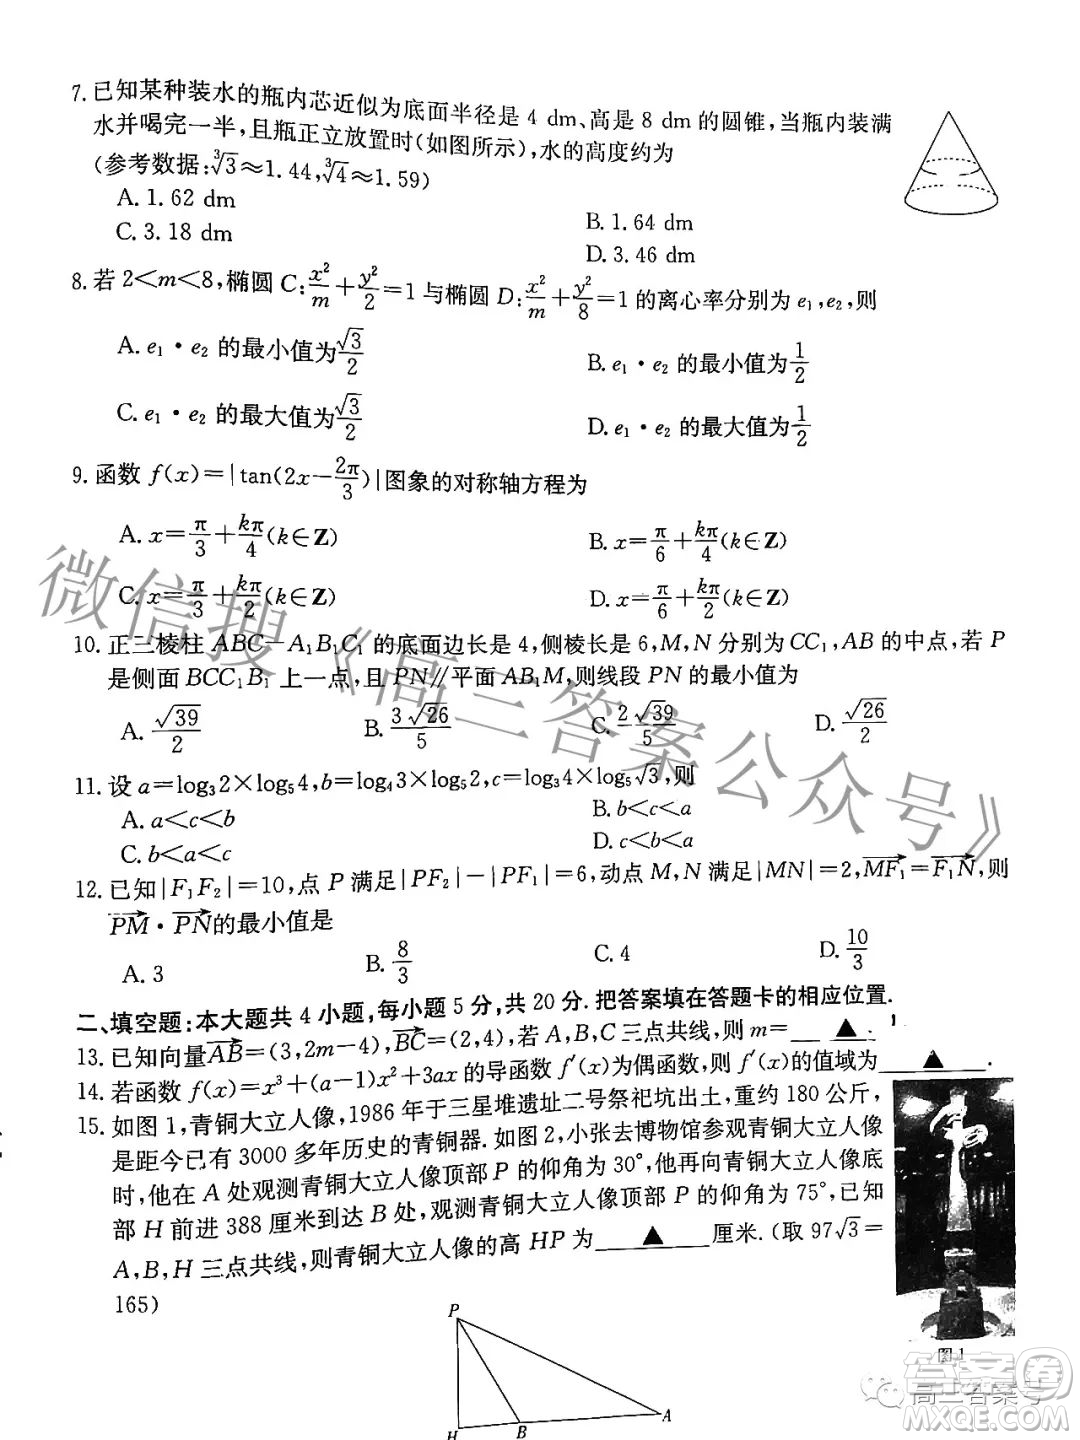 7. 已知某种装水的瓶内芯近似为底面半径是 4 dm、高是 8 dm 的圆锥,当瓶内装满
水并喝完一半,且瓶正立放置时(如图所示),水的高度约为
(参考数据:∛3≈1.44,∛4≈1.59)
A. 1.62 dm
B. 1.64 dm
C. 3.18 dm
D. 3.46 dm
8. 若 2<m<8,椭圆 C:x²/m+y²/2=1 与椭圆 D:x²/m+y²/8=1 的离心率分别为 e₁,e₂,则
A. e₁·e₂ 的最小值为√3/2
B. e₁·e₂ 的最小值为1/2
C. e₁·e₂ 的最大值为√3/2
D. e₁·e₂ 的最大值为1/2
9. 函数 f(x)=|tan(2x-2π/3)|图象的对称轴方程为
A. x=π/3+kπ/4(k∈Z)
B. x=π/6+kπ/4(k∈Z)
C. x=π/3+kπ/2(k∈Z)
D. x=π/6+kπ/2(k∈Z)
10. 正三棱柱 ABC-A₁B₁C₁ 的底面边长是 4,侧棱长是 6,M,N 分别为 CC₁,AB 的中点,若 P
是侧面 BCC₁B₁ 上一点,且 PN∥平面 AB₁M,则线段 PN 的最小值为
A. √39/2
B. 3√26/5
C. 2√39/5
D. √26/2
11. 设 a=log₃2×log₅4,b=log₄3×log₅2,c=log₃4×log₅√3,则
A. a<c<b
B. b<c<a
C. b<a<c
D. c<b<a
12. 已知|F₁F₂|=10,点 P 满足|PF₂|-|PF₁|=6,动点 M,N 满足|MN|=2,MF₁=F₁N,则
PM·PN的最小值是
A. 3
B. 8/3
C. 4
D. 10/3
二、填空题:本大题共 4 小题,每小题 5 分,共 20 分.把答案填在答题卡的相应位置.
13. 已知向量AB=(3,2m-4),BC=(2,4),若 A,B,C 三点共线,则 m=▲.
14. 若函数 f(x)=x³+(a-1)x²+3ax 的导函数 f′(x)为偶函数,则 f′(x)的值域为▲.
15. 如图 1,青铜大立人像,1986 年于三星堆遗址二号祭祀坑出土,重约 180 公斤,
是距今已有 3000 多年历史的青铜器.如图 2,小张去博物馆参观青铜大立人像
时,他在 A 处观测青铜大立人像顶部 P 的仰角为 30°,他再向青铜大立人像底
部 H 前进 388 厘米到达 B 处,观测青铜大立人像顶部 P 的仰角为 75°,已知
A,B,H 三点共线,则青铜大立人像的高 HP 为▲厘米.(取 97√3=
165)
P
H
B
A
图 1
微信搜《高三答案公众号》
高三答案号
答案圈
MXQE.COM